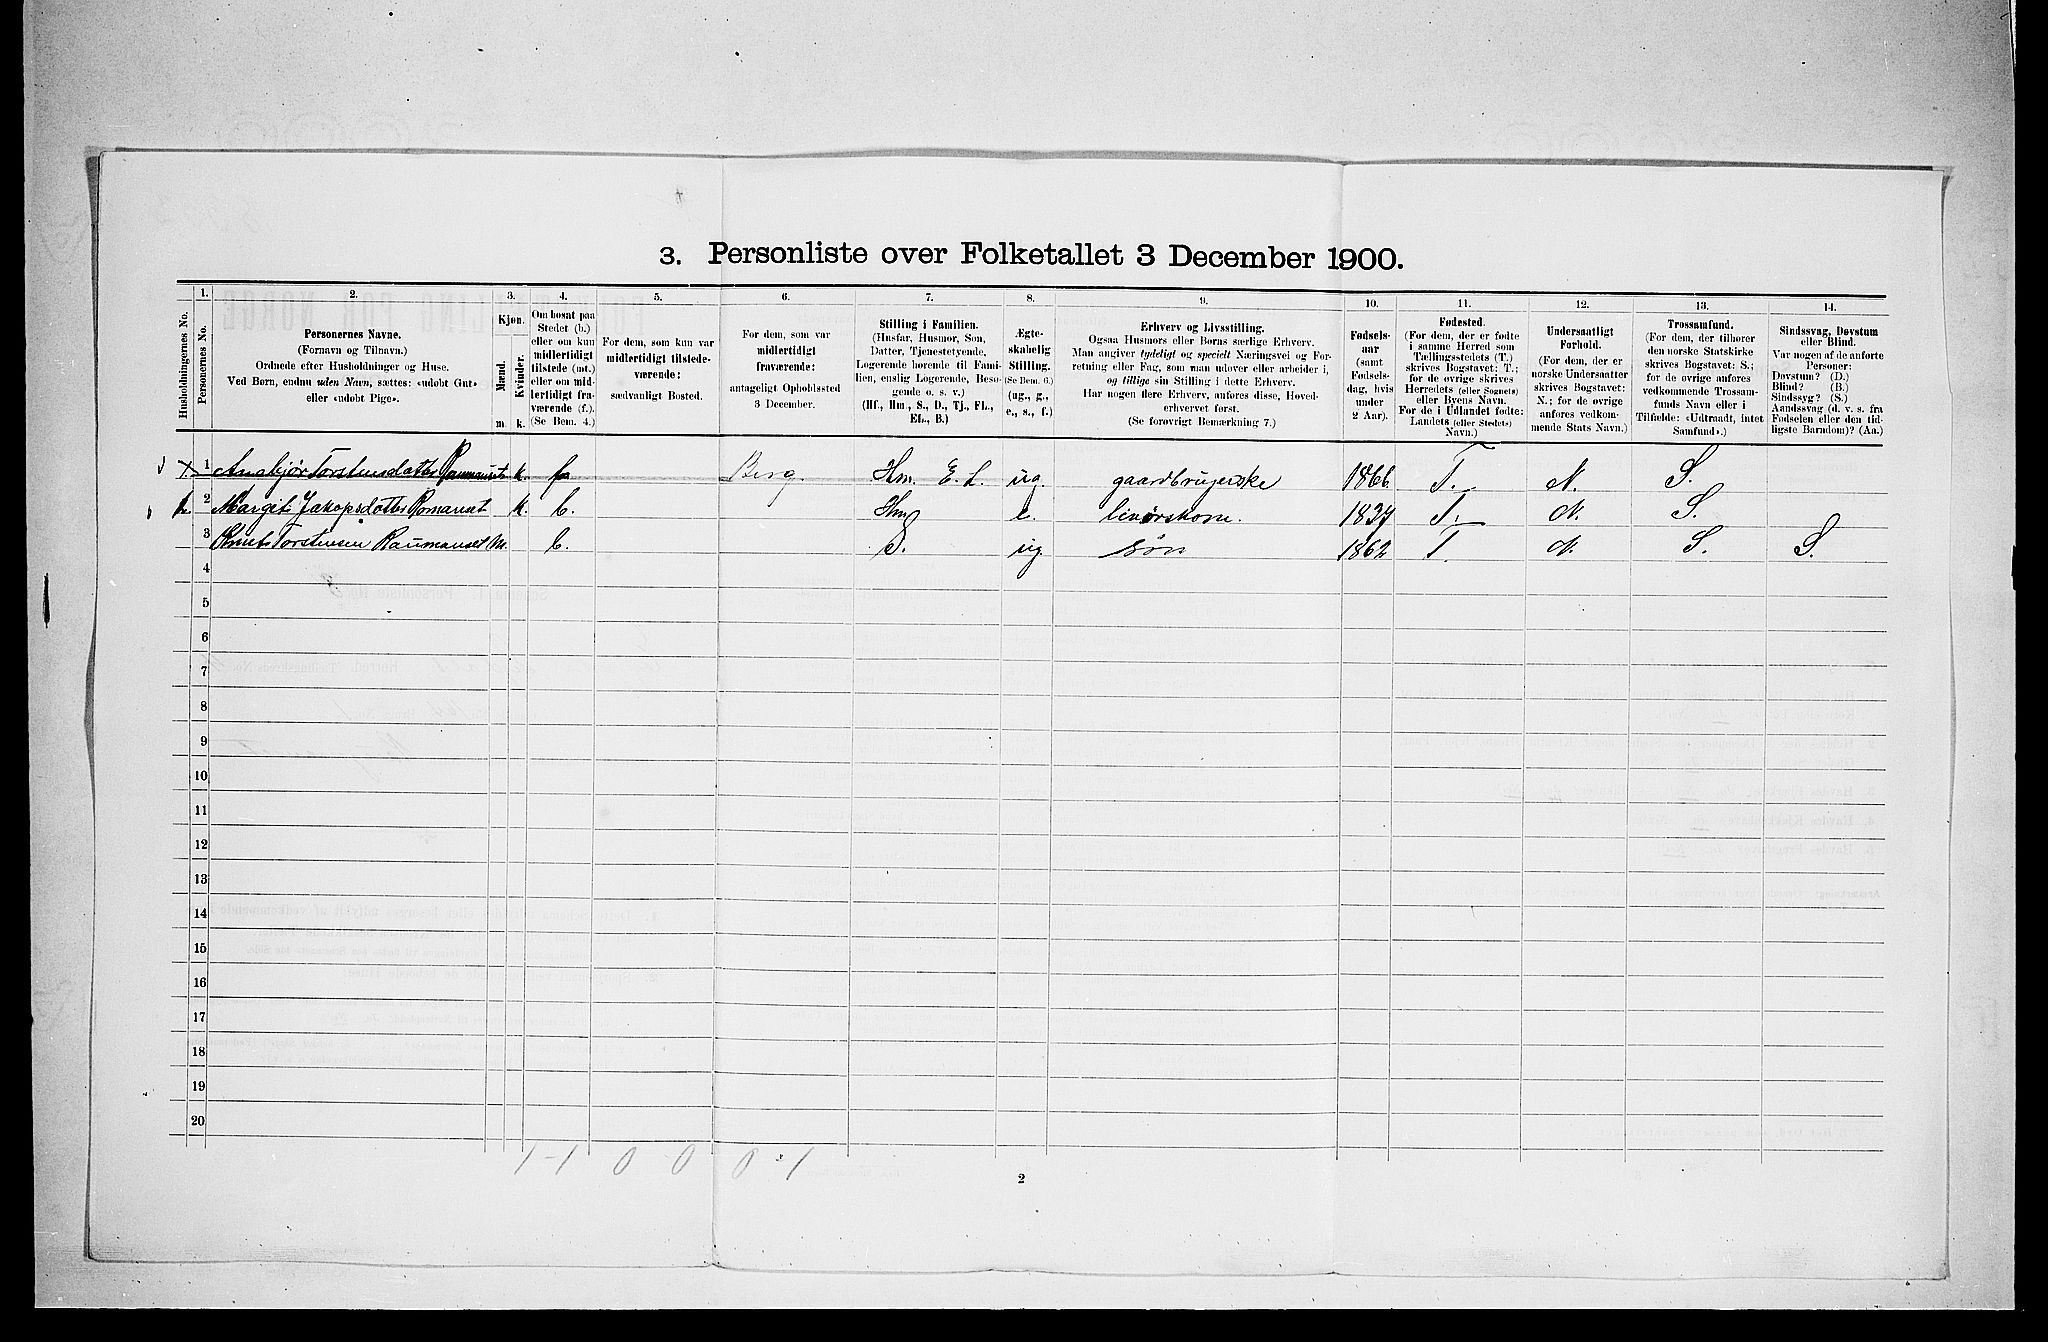 3. Personliste over Folketallet 3 December 1900.
Husholdningernes No.
1.
Personernes No.
2.
Personernes Navne.
(Fornavn og Tilnavn.)
Ordnede efter Husholdninger og Huse.
Ved Børn, endnu uden Navn, sættes: «udøbt Gut»
eller «udøbt Pige».
3.
Kjøn.
Mænd.
Kvinder.
m.
k.
4.
Om bosat paa
Stedet (b.)
eller om kun
midlertidigt
tilstede (mt.)
eller om mid-
lertidigt fra-
værende (f.).
(Se Bem. 4.)
5.
For dem, som kun var
midlertidigt tilstede-
værende:
sædvanligt Bosted.
6.
For dem, som var
midlertidigt
fraværende:
antageligt Opholdssted
3 December.
7.
Stilling i Familien.
(Husfar, Husmor, Søn,
Datter, Tjenestetyende,
Logerende hørende til Fami-
lien, enslig Logerende, Besø-
gende o. s. v.)
(Hf., Hm., S., D., Tj., FL.,
EL., B.)
8.
Ægte-
skabelig
Stilling.
(Se Bem. 6.)
(ug., g.,
e., s., f.)
9.
Erhverv og Livsstilling.
Ogsaa Husmors eller Børns særlige Erhverv.
Man angiver tydeligt og specielt Næringsvei og For-
retning eller Fag, som man udøver eller arbeider i,
og tillige sin Stilling i dette Erhverv.
Har nogen flere Erhverv, anføres disse, Hoved-
erhvervet først.
(Se forøvrigt Bemærkning 7.)
10.
Fødsels-
aar
(samt
Fødsels-
dag, hvis
under
2 Aar).
11.
Fødested.
(For dem, der er fødte
i samme Herred som
Tællingsstedets (T.)
skrives Bogstavet: T.;
for de øvrige skrives
Herredets (eller Sognets)
eller Byens Navn.
For de i Udlandet fødte:
Landets (eller Stedets)
Navn.)
12.
Undersaatligt
Forhold.
(For dem, der er
norske Undersaatter
skrives Bogstavet:
N.; for de øvrige
anføres vedkom-
mende Stats Navn.)
13.
Trossamfund.
(For dem, der tilhører
den norske Statskirke
skrives Bogstavet: S.;
for de øvrige anføres
vedkommende Trossam-
funds Navn eller i
Tilfælde: «Udtraadt, intet
Samfund».)
14.
Sindssvag, Døvstum
eller Blind.
Var nogen af de anførte
Personer:
Døvstum? (D.)
Blind? (B.)
Sindssyg? (S.)
Aandssvag (d. v. s. fra
Fødselen eller den tid-
ligste Barndom)? (Aa.)
1 Torstensdatter k. f. Berg. Hm. E. L. ug. gaardbrugerske 1866 T. N. S.
2 Margit Jakopsdatter Romanset k. b. Hm e. livørskone. 1837 T. N. S.
3 Knut Torstensen Raumanset m. b. S. ug. søn 1862 T. N. S. S.
4
5
6
7
8
9
10
11
12
13
14
15
16
17
18
19
20
1 - 1 0 - 0 0 - 1
2